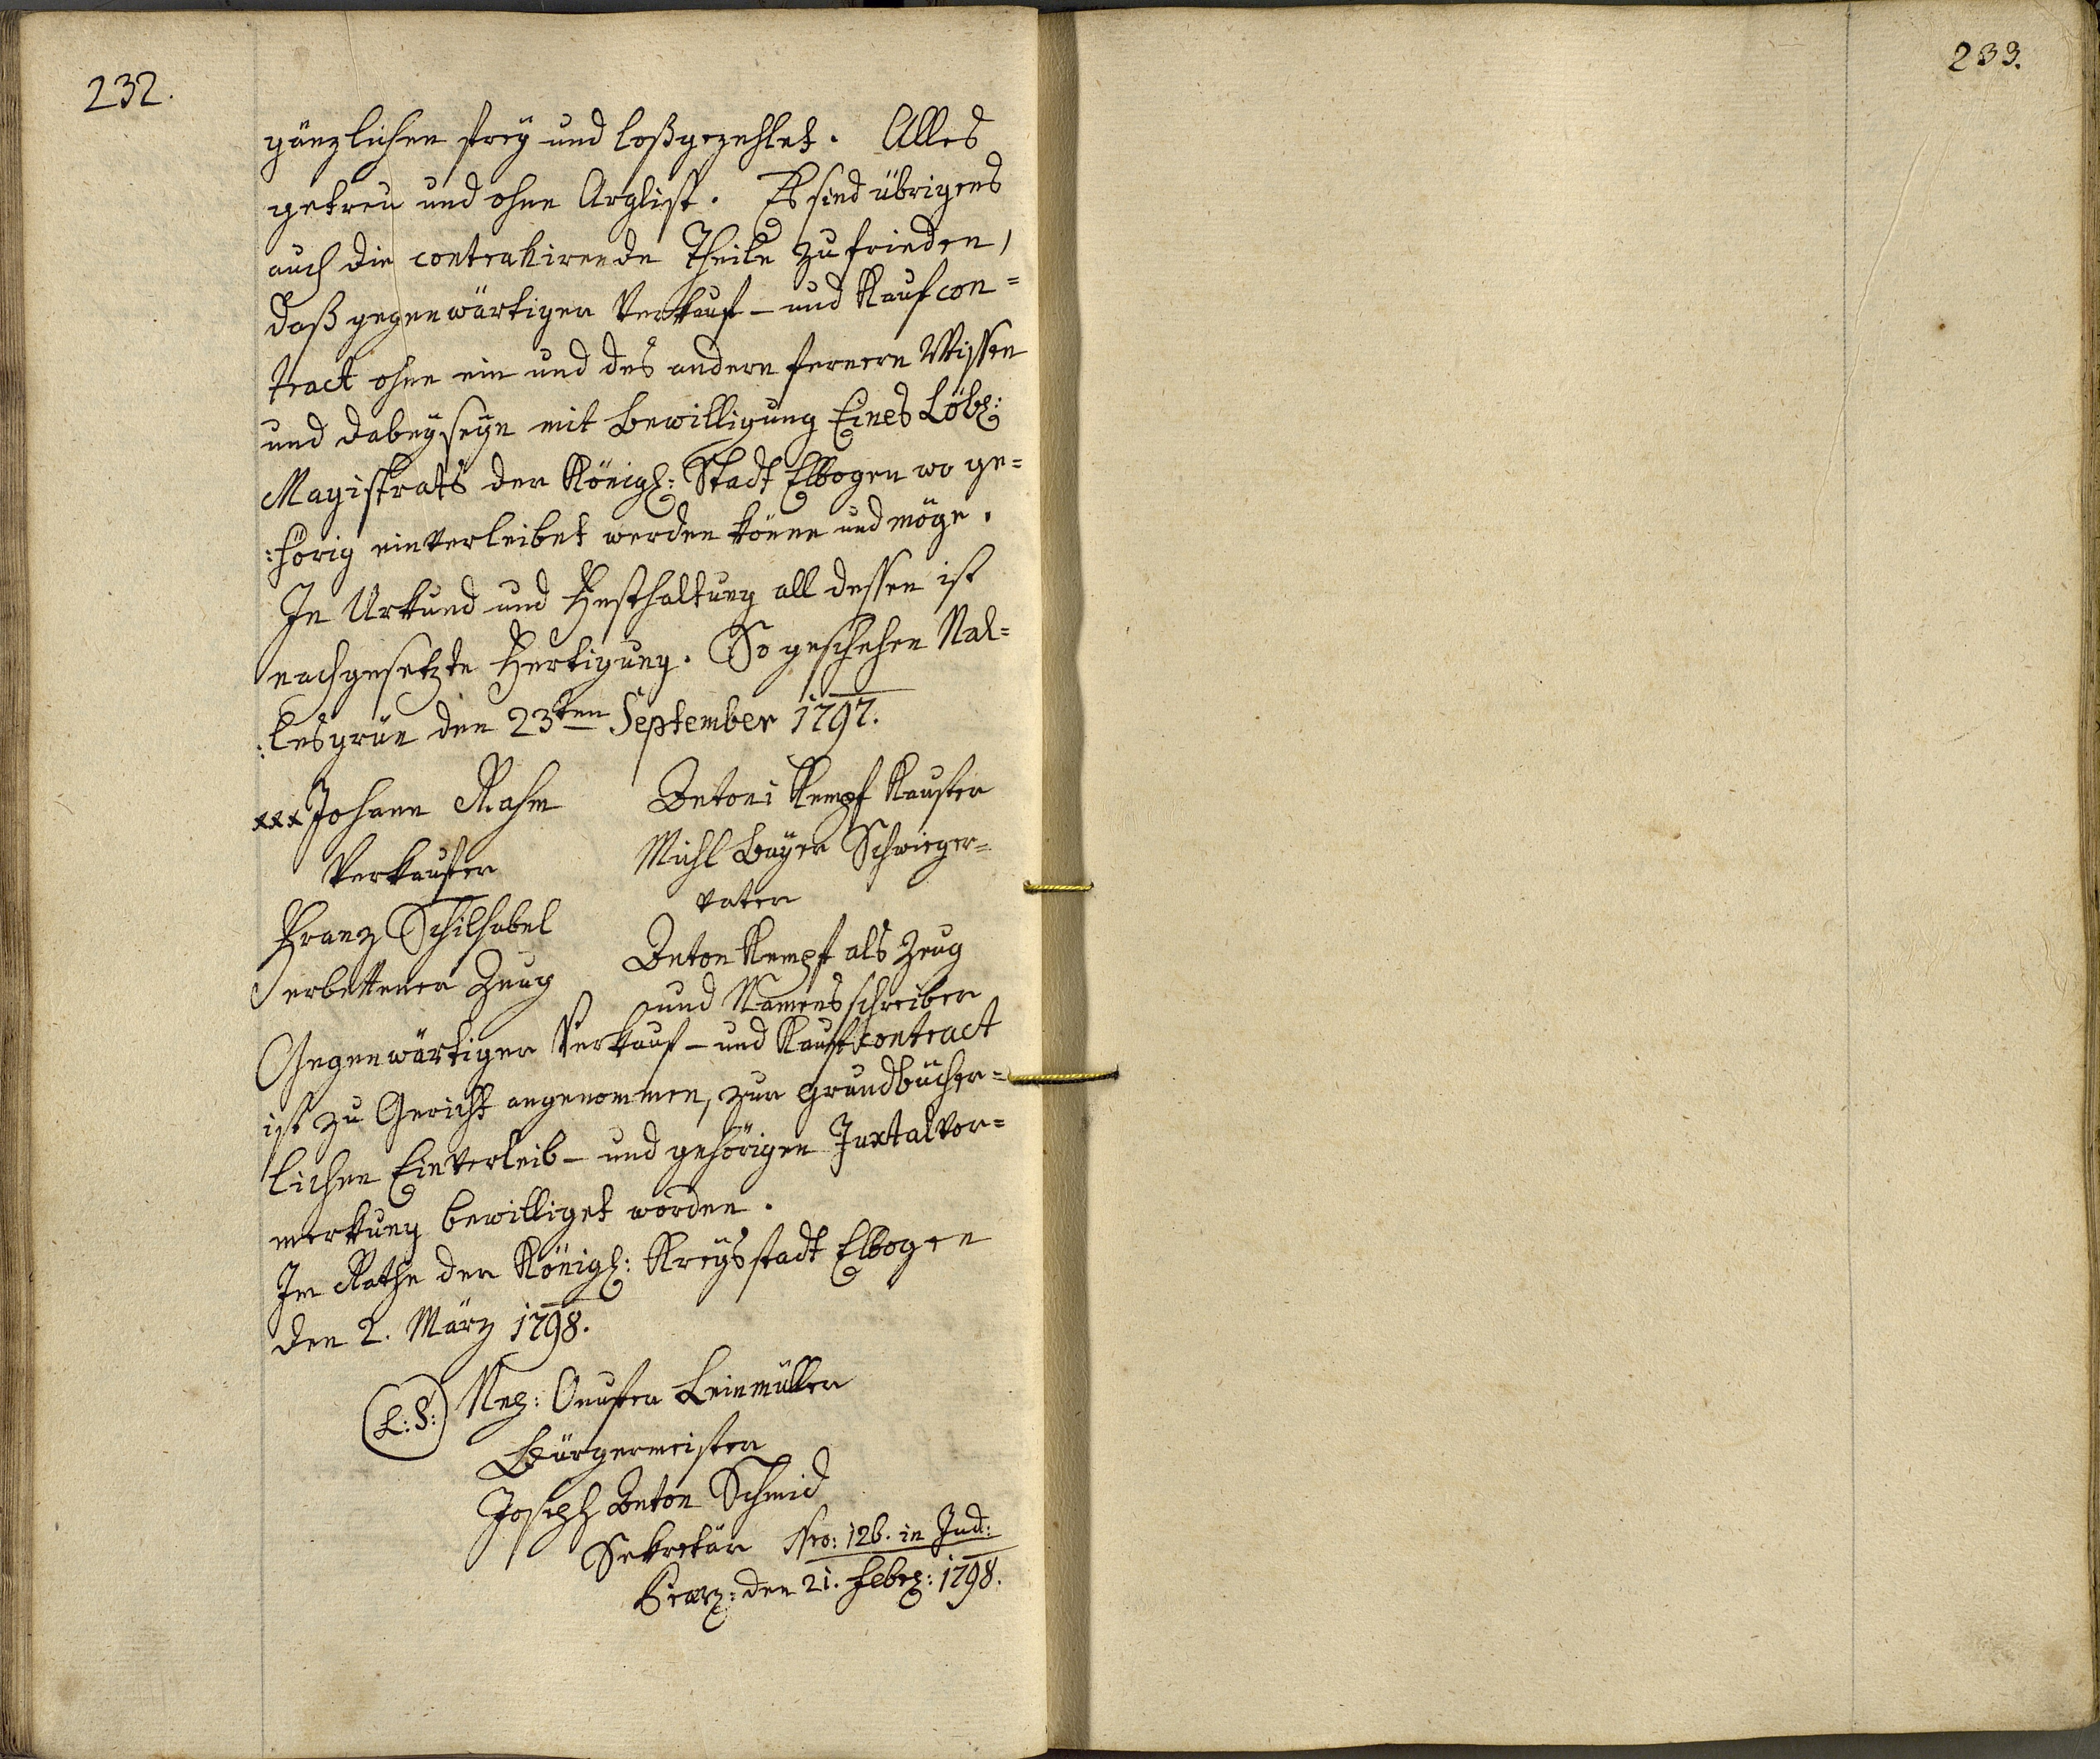 232.
gänzlichen frey und loßgezehlet. Alles
getreu und ohne Arglist. Es sind übrigens
auch die contrahirende Theile zufrieden,
daß gegenwärtiger Verkauf- und Kaufcon=
tract ohne ein und des andern fernern Wissen
und dabeyseyn mit Bewilligung Eines Löbl:
Magistrats der Königl: Stadt Elbogen wo ge=
:hörig einverleibet werden könne und möge.
In Urkund und Festhaltung all dessen ist
nachgesetzte Fertigung. So geschehen Nal=
:lesgrün den 23ten September 1797.
xxx Johann Rahm
Verkaufer
Franz Schilhabel
erbettener Zeug
Antoni Kempf Kaufer
Michl Bayer Schwieger=
vater
Anton Kempf als Zeug
und Namensschreiber
Gegenwärtiger Verkauf- und Kaufcontract
ist zu Gericht angenommen, zur grundbücher=
lichen Einverleib- und gehörigen Juxtalvor=
merkung bewilliget worden.
Im Rathe der Königl: Kreysstadt Elbogen
den 2. März 1798.
L: S:
Leinmüller
Bürgermeister
Joseph Anton Schmid
Sekretär Nro: 126. in Jud:
den 21. Febr: 1798.
233.